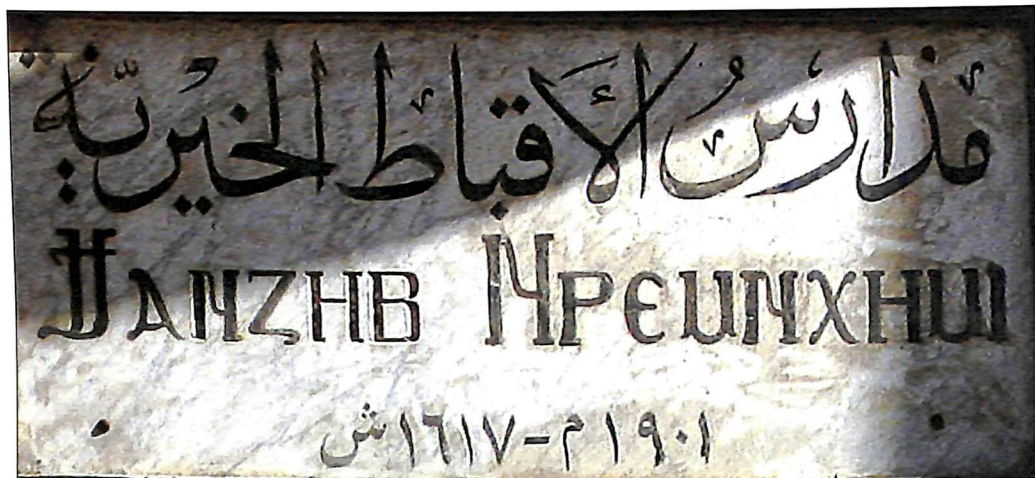 مدارس الأقباط الخيرية
ϮⲀⲚⲌⲎⲂ ⲚⲢⲈⲘⲚⲬⲎⲘⲒ
١٩٠١م - ١٦١٧ش